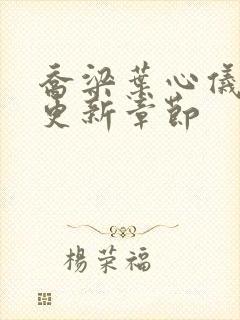 喬梁葉心儀
更新章節
楊荣福